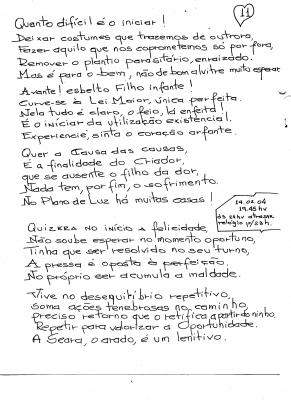 11
Quanto difícil é o iniciar!
Deixar costumes que trazemos de outrora,
Fazer aquilo que nos coprometemos só por fora,
Remover o plantio parasitário, enraizado.
Mas é para o bem, não de bom alvitre muito esperar
Avante! esbelto Filho infante!
Curve-se à Lei Maior, única perfeita.
Nela tudo é claro, o feio, lá enfeita!
É o iniciar da utilização existêncial.
Experiencie, sinta o coração arfante.
Quer a Causa das causas,
É a finalidade do Criador,
que se ausente o filho da dor,
Nada tem, por fim, o sofrimento.
No Plano de Luz há muitas casas!
14.02.04
19.45hv
às 24hv atrazar
relógio p/23h.
Quizera no início a felicidade,
Não soube esperar no momento oportuno,
Tinha que ser resolvido no seu turno,
A pressa é oposta à perfeição,
No próprio ser acumula a maldade.
Vive no desequitíbrio repetitivo,
soma ações tenebrosas no caminho,
preciso retorno que o retifica a partir do ninho.
Repetir para valorizar a Oportunidade.
A Seara, o arado, é um lenitivo.